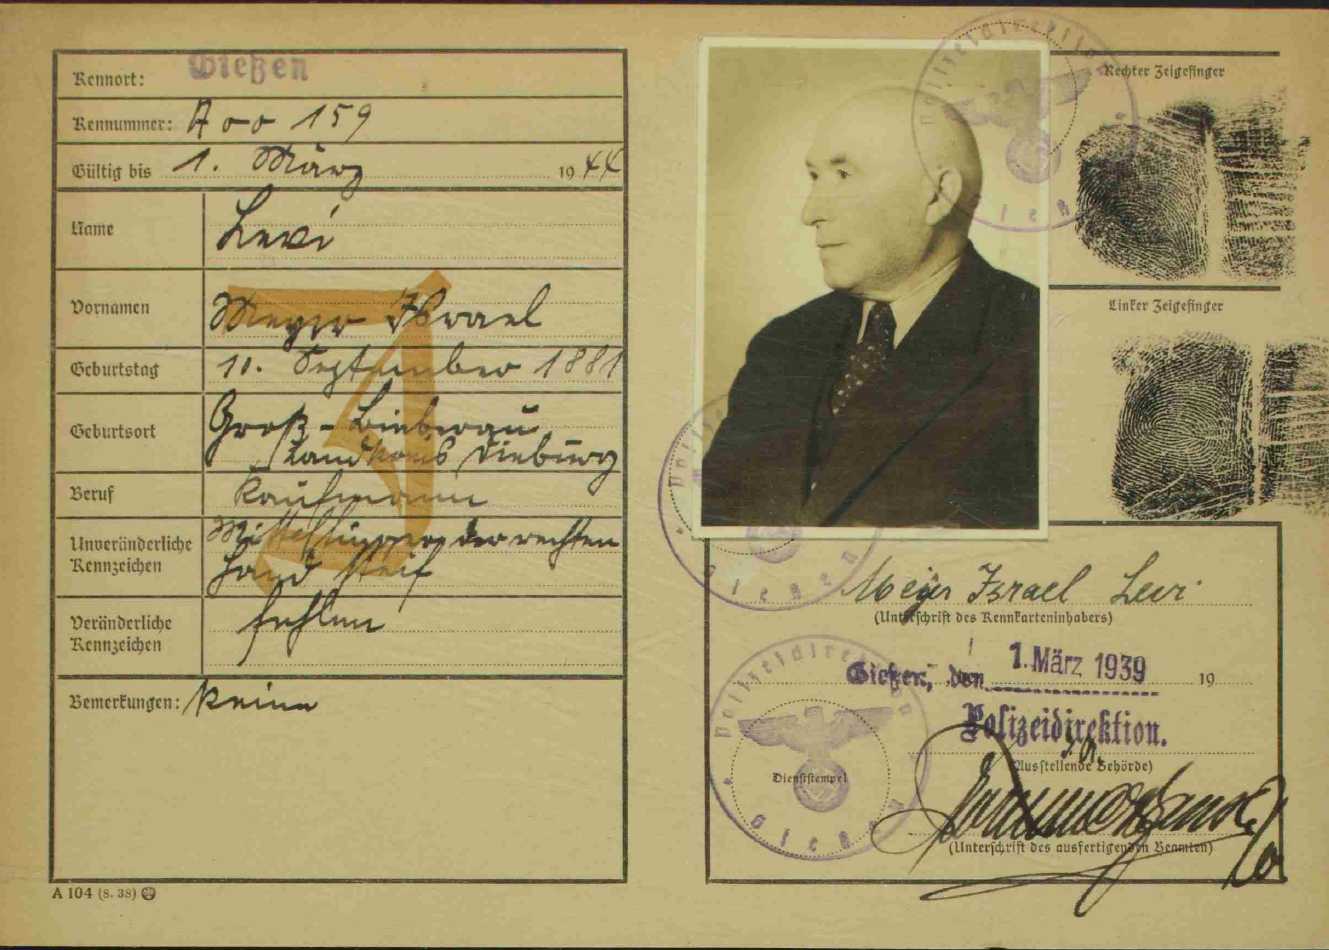 Kennort: Gießen
Kennummer: A 00 159
Gültig bis 1. März 1944
Name Levi
Vornamen Meyer Israel
Geburtstag 11. September 1881
Geburtsort Groß-Bieberau
Landkreis Dieburg
Beruf Kaufmann
Unveränderliche Kennzeichen Mittelfinger der rechten
Hand steif
Veränderliche Kennzeichen fehlen
Bemerkungen: Keine
A 104 (8. 38)
J
Rechter Zeigefinger
Linker Zeigefinger
Polizeidirektion
Gießen
Polizeidirektion
Gießen
Meyer Israel Levi
(Unterschrift des Kennkarteninhabers)
Gießen, den 1. März 1939 19
Polizeidirektion.
(Ausstellende Behörde)
Polizeidirektion
Dienststempel
Gießen
(Unterschrift des ausfertigenden Beamten)